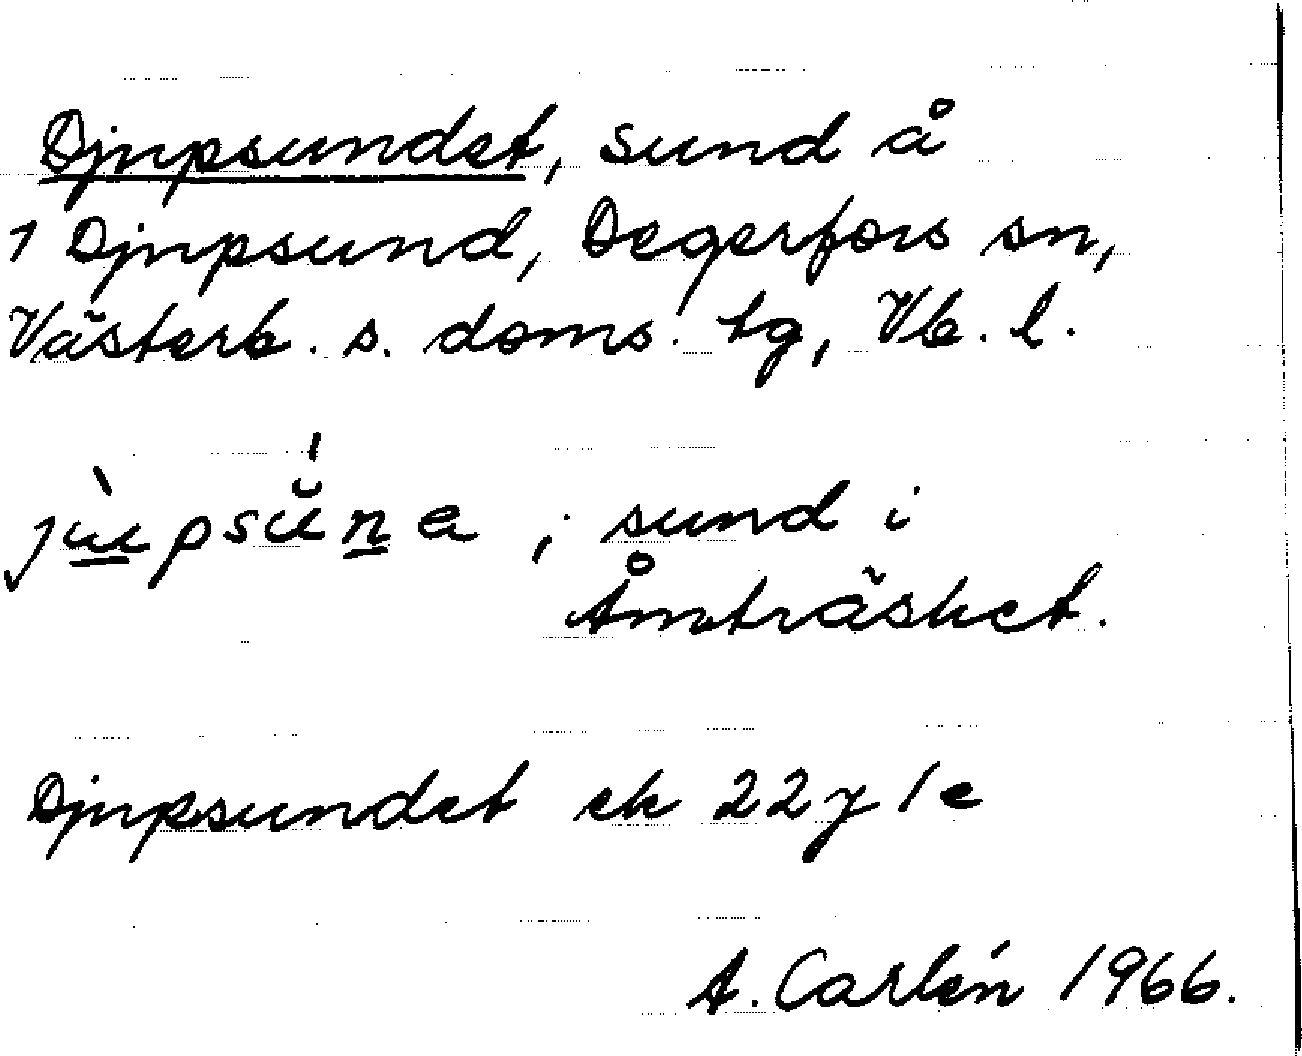 Djupsundet, sund å
1 Djupsund, Degerfors sn,
Västerb. s. doms. tg, Vb. l.
jùpsŭ́na ; sund i
Åmträsket.
Djupsundet ek 22 y 1 e
A. Carlén 1966.